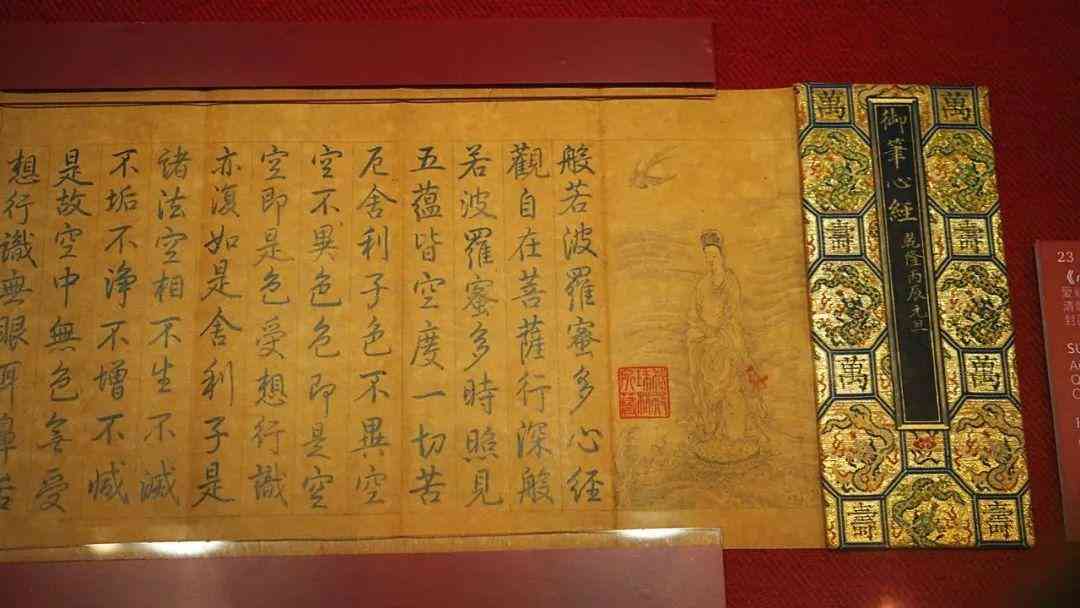 御筆心經
乾隆丙辰元旦
萬 萬
壽 壽
萬 萬
壽 壽
般若波羅蜜多心經
觀自在菩薩行深般
若波羅蜜多時照見
五蘊皆空度一切苦
厄舍利子色不異空
空不異色色即是空
空即是色受想行識
亦復如是舍利子是
諸法空相不生不滅
不垢不淨不增不減
是故空中無色無受
想行識無眼耳鼻舌
23